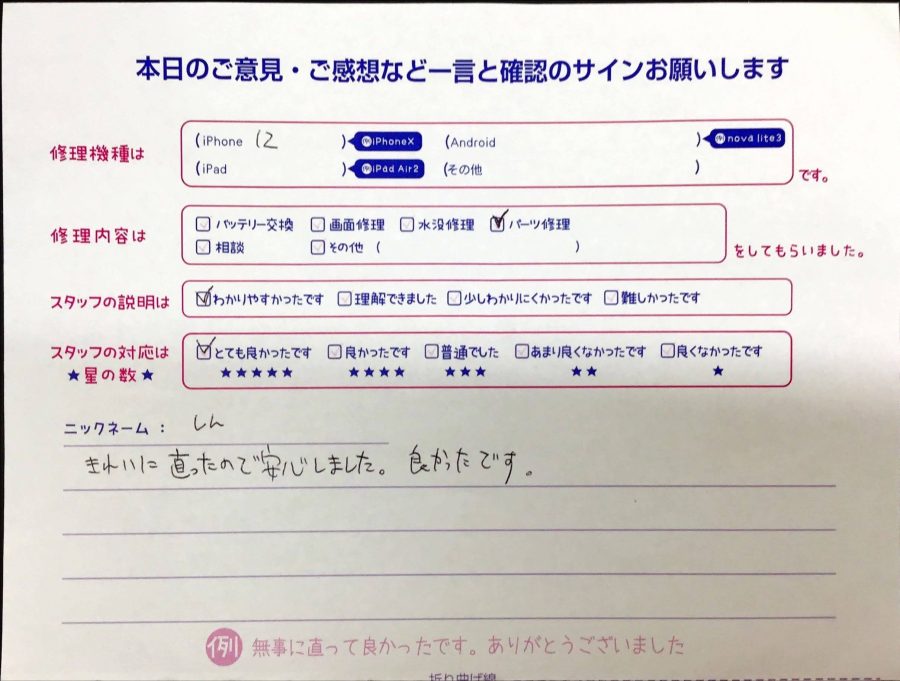 本日のご意見・ご感想など一言と確認のサインお願いします
修理機種は (iPhone 12 ) iPhoneX (Android ) nova lite3
(iPad ) iPad Air2 (その他 ) です。
修理内容は バッテリー交換 画面修理 水没修理 パーツ修理
相談 その他 ( ) をしてもらいました。
スタッフの説明は わかりやすかったです 理解できました 少しわかりにくかったです 難しかったです
スタッフの対応は とても良かったです 良かったです 普通でした あまり良くなかったです 良くなかったです
★星の数★ ★★★★★ ★★★★ ★★★ ★★ ★
ニックネーム： しん
きれいに直ったので安心しました。良かったです。
例 無事に直って良かったです。ありがとうございました
折り曲げ線